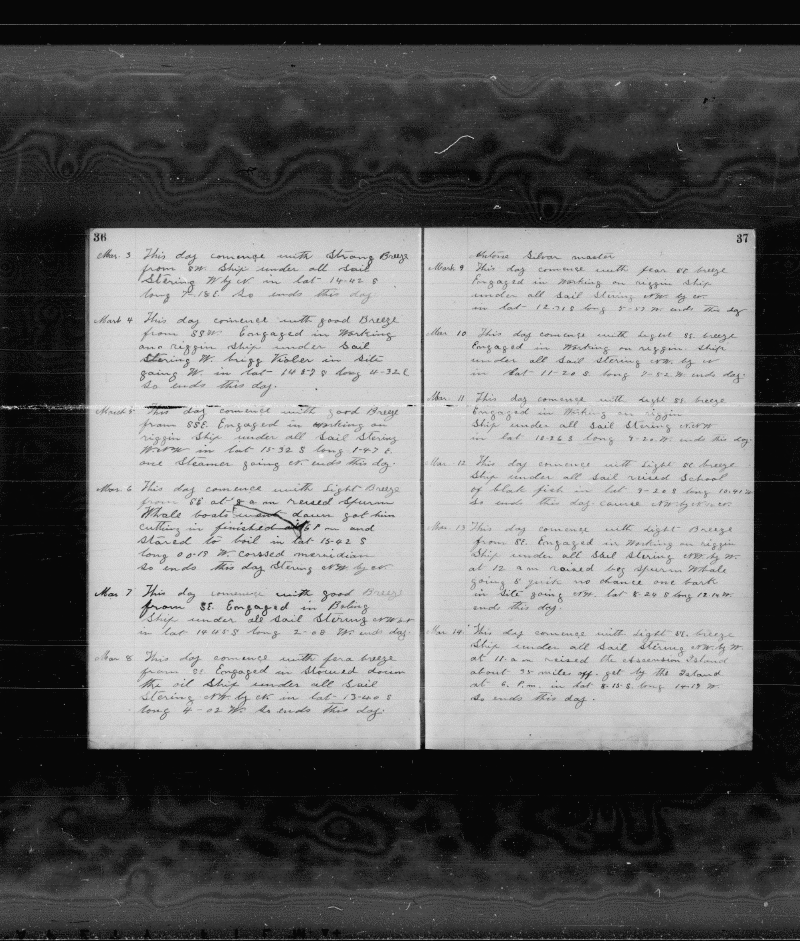 36
Mar. 3 This day comence with Strong Breeze
from SW. Ship under all Sail
Stering W by N in lat 14-42 S
long 7-18 E. So ends this day
Mark 4 This day comence with good Breeze
from SSW. Engaged in Working
on riggin Ship under Sail
Stering W. brigg in Site
going W. in lat 14 S long 4-32 E
So ends this day.
March 5 This day comence with good Breeze
from SSE. Engaged in working on
riggin Ship under all Sail Stering
WNW in lat 15-32 S long 1-47 E.
one Steamer going N. ends this day.
Mar. 6 This day comence with Light Breeze
from SE at 8 a m reised Spurm
Whale boats went down got him
cutting in finished at 6 P.m and
stared to boil in lat 15-42 S
long 00-19 W. corssed meredian
So ends this day Stering NW by N
Mar 7 This day comence with good Breeze
from SE. Engaged in Boling
Ship under all Sail Stering
in lat 14-45 S long 2-08 W. ends day.
Mar 8 This day comence with fera breeze
from SE Engaged in Stowed down
the oil Ship under all Sail
Stering NW by N in lat 13-40 S
long 4-02 W. So ends this day.
37
Antone Silvar master
Mark 9 This day comence with fear SE breeze
Engaged in Working on riggin Ship
under all Sail Stering NW. by W.
in lat 12-31 S long W. ends this day
Mar 10 This day comence with light SE. breeze
Engaged in Working on riggin Ship
under all Sail Stering NW. by N
in lat 11-20 S. long 7-52 W. ends day.
Mar. 11 This day comence with light SE. breeze
Engaged in Working on riggin
Ship under all Sail Stering NNW
in lat 10-26 S long 9-20 W. ends this day.
Mar. 12 This day comence with Light SE. breeze
Ship under all Sail raised School
of blak fish in lat 9-20 S long 10-41 W
So ends this day. course NW by N
Mar. 13 This day comence with Light Breeze
from SE. Engaged in Working on riggin
Ship under all Sail Stering NW by W.
at 12 am raised beg Spurm Whale
going S quik no chance one bark
in Site going NW. lat 8-24 S long 12-14 W.
ends this day.
Mar 14. This day comence with Light SE. breeze
Ship under all Sail Stering NW. by W.
at 11. a.m raised the Ascension Island
about 35 miles off. get by the Island
at 6. P.m. in lat 8-15 S. long 14-19 W.
So ends this day.